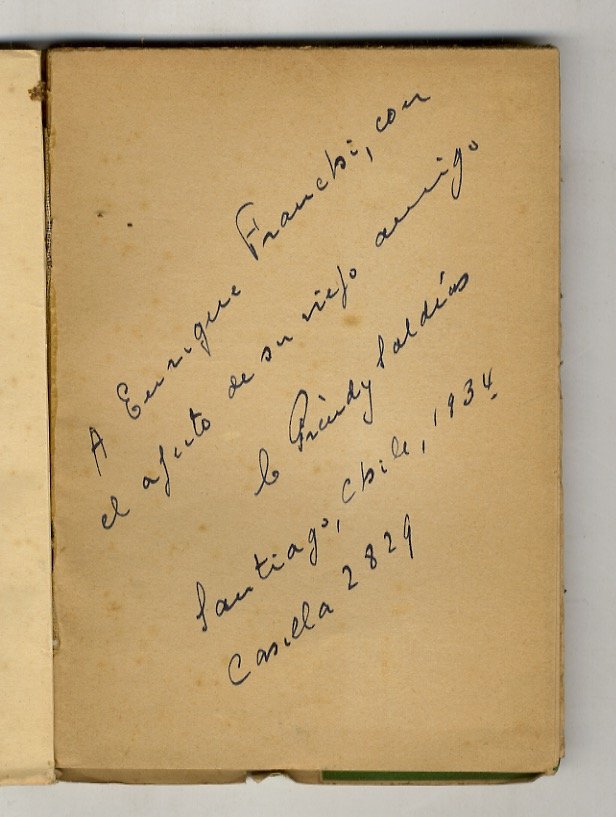 A Enrique Franchi, con
el afecto de su viejo amigo
Saldías
Santiago, Chile, 1934.
Casilla 2829